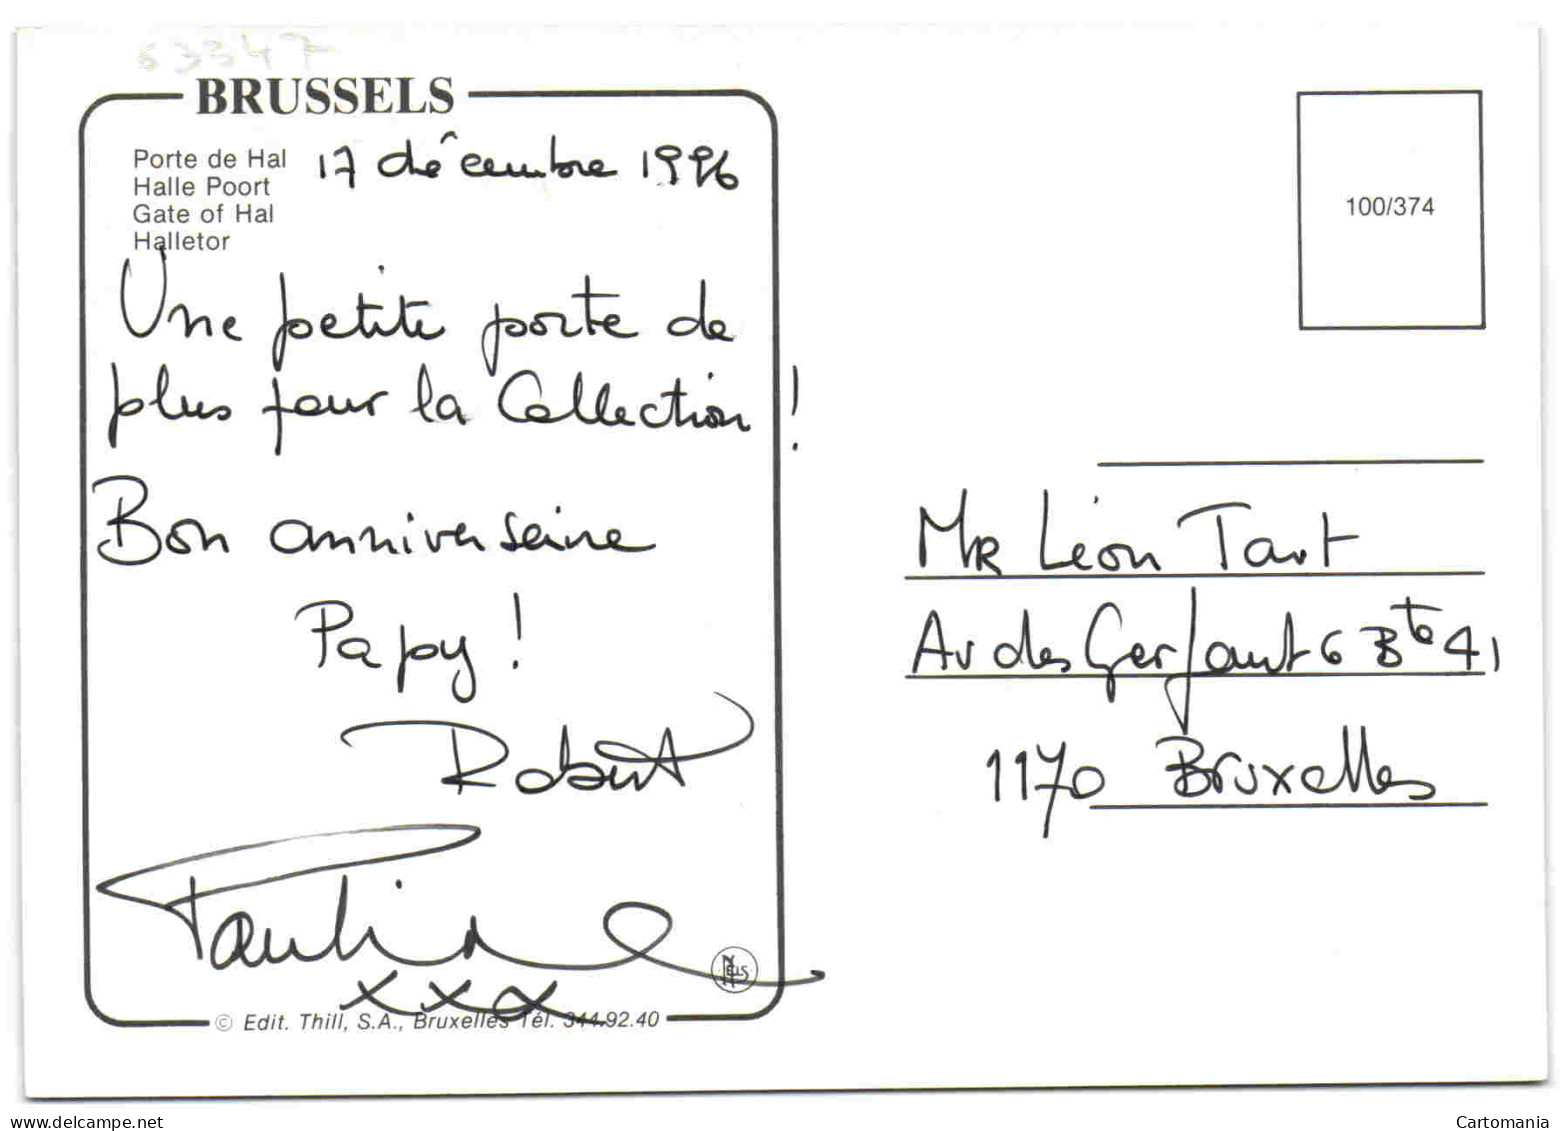 63347
BRUSSELS
Porte de Hal
Halle Poort
Gate of Hal
Halletor
17 décembre 1996
Une petite porte de
plus pour la Collection !
Bon anniversaire
Papy !
Robert
Pauline
xxx
NELS
© Edit. Thill, S.A., Bruxelles Tél. 344.92.40
100/374
MR Léon Tart
Av des Gerfaut 6 Bte 41
1170 Bruxelles
www.delcampe.net
Cartomania